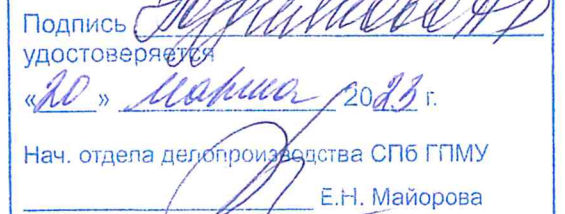 Подпись
удостоверяется
«20» марта 2023 г.
Нач. отдела делопроизводства СПб ГПМУ
Е.Н. Майорова